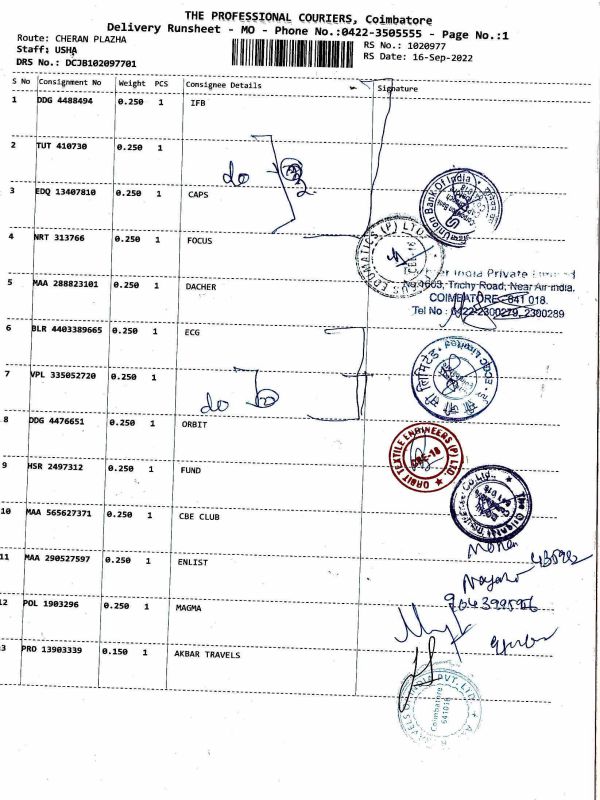 THE PROFESSIONAL COURIERS, Coimbatore
Delivery Runsheet - MO - Phone No.:0422-3505555 - Page No.:1
Route: CHERAN PLAZHA
RS No.: 1020977
Staff: USHA
RS Date: 16-Sep-2022
DRS No.: DCJB102097701
S No Consignment No Weight PCS Consignee Details Signature
1 DDG 4488494 0.250 1 IFB
2 TUT 410730 0.250 1
do
3 EDQ 13407810 0.250 1 CAPS
Union Bank Of India
4 NRT 313766 0.250 1 FOCUS
FOCUS EDUMATICS (P) LTD.
India Private Limited
5 MAA 288823101 0.250 1 DACHER
No.1603, Trichy Road, Near Air-india,
COIMBATORE - 641 018.
Tel No : 0422-2300279, 2300289
6 BLR 4403389665 0.250 1 ECG
ECGC Limited
7 VPL 335052720 0.250 1
do
8 DDG 4476651 0.250 1 ORBIT
ORBIT TEXTILE ENGINEERS (P) LTD.
CBE-18
9 HSR 2497312 0.250 1 FUND
10 MAA 565627371 0.250 1 CBE CLUB
11 MAA 290527597 0.250 1 ENLIST
12 POL 1903296 0.250 1 MAGMA
13 PRO 13903339 0.150 1 AKBAR TRAVELS
TRAVELS OF INDIA PVT. LTD.
Coimbatore
641018